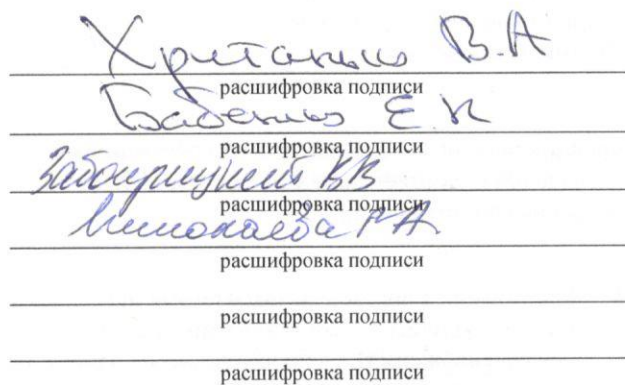 Хритонько В.А
расшифровка подписи
Бабенко Е.К
расшифровка подписи
ВВ
расшифровка подписи
Николаева НА
расшифровка подписи
расшифровка подписи
расшифровка подписи